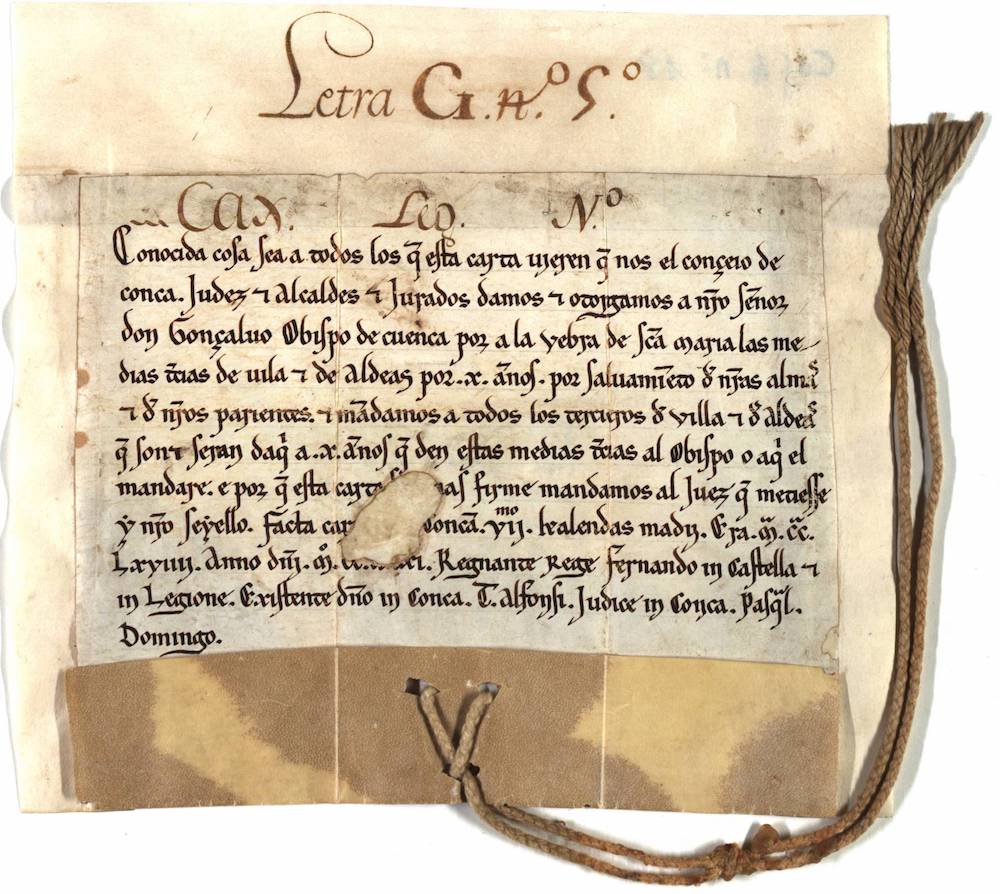 Letra G. n.º 5.º
Cax. Leg. N.º
Conocida cosa sea a todos los q̃ esta carta uieren q̃ nos el conçeio de
conca. Judez ⁊ Alcaldes ⁊ Jurados damos ⁊ otorgamos a nr̃o Señor
don Gonçaluo Obispo de cuenca por a la vebra de sc̃a maria las me-
dias t̃cias de uila ⁊ de Aldeas por .x. años. por saluamĩeto d̃ nr̃as alm̃a
⁊ d̃ nr̃os parientes. ⁊ mãdamos a todos los terceros d̃ villa ⁊ d̃ Aldeas
q̃ son ⁊ seran daq̃ a .x. años q̃ den estas medias t̃cias al Obispo o aq̃ el
mandare. e por q̃ esta carta mas firme mandamos al Juez q̃ metiesse
ẏ nr̃o seyello. Facta conca. vijᵐᵒ. kalendas madij. Era. m̃. cc̃.
Lxviiij. Anno dñi. m̊. Regnante Rege Fernando in Castella ⁊
in Legione. Existente dño in Conca. T. Alfonsi. Judice in Conca. Pasq̃l.
Domingo.